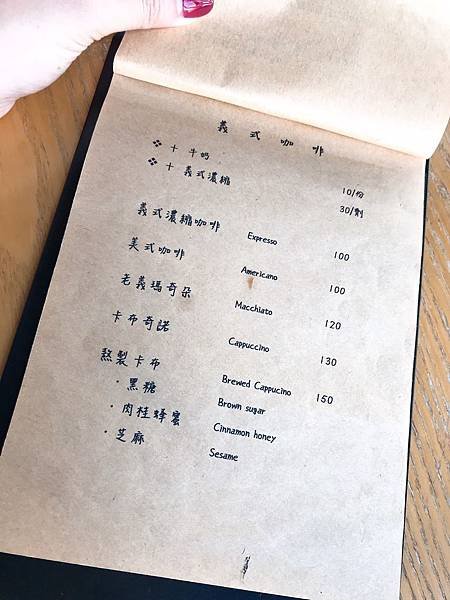 義式咖啡
❖ + 牛奶 10/份
❖ + 義式濃縮 30/劑
義式濃縮咖啡 Expresso 100
美式咖啡 Americano 100
老義瑪奇朵 Macchiato 120
卡布奇諾 Cappuccino 130
熬製卡布 Brewed Cappucino 150
・黑糖 Brown sugar
・肉桂蜂蜜 Cinnamon honey
・芝麻 Sesame